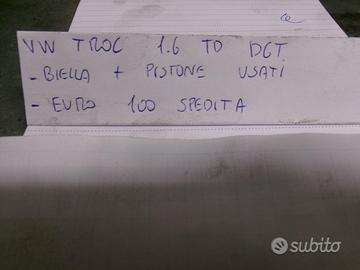 VW TROC 1.6 TD DCT
- BIELLA + PISTONE USATI
- EURO 100 SPEDITA
subito